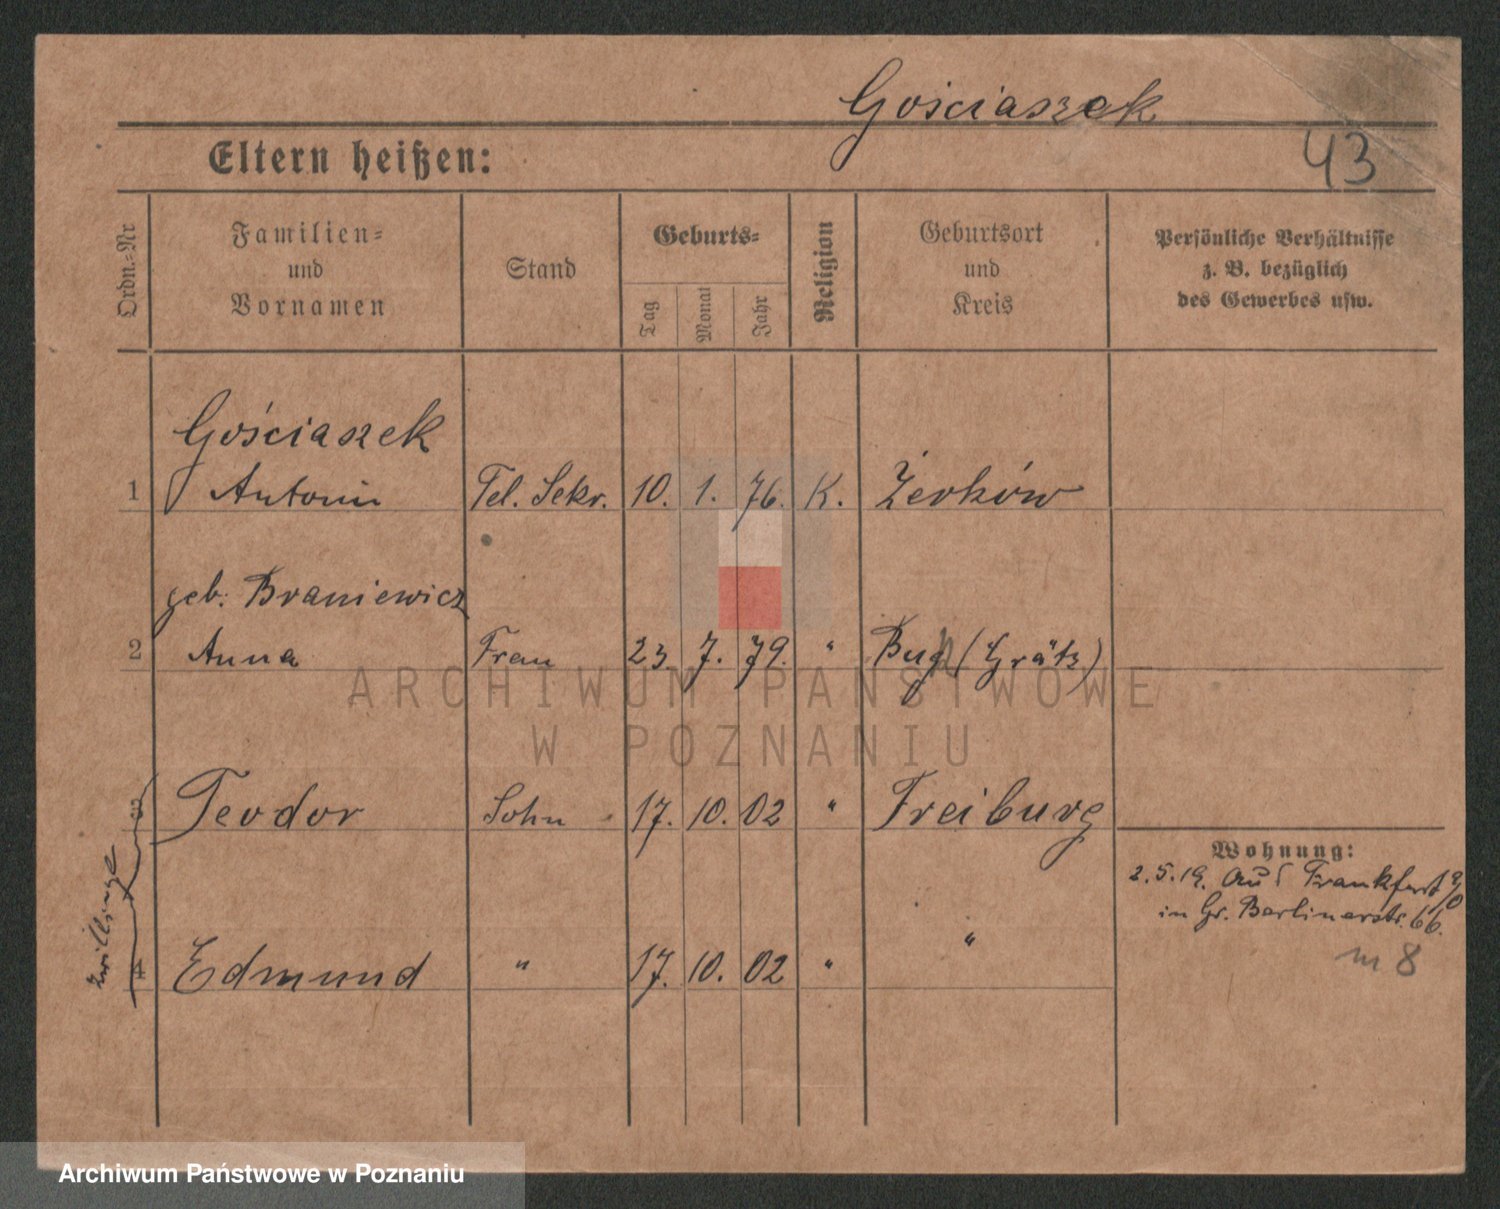 Gościaszek
Eltern heißen:
43
Ordn.=Nr
Familien=
und
Vornamen
Stand
Geburts=
Tag
Monat
Jahr
Religion
Geburtsort
und
Kreis
Persönliche Verhältnisse
z. B. bezüglich
des Gewerbes usw.
Gościaszek
1 Antonin Tel. Sekr. 10. 1. 76. K. Żerków
geb. Braniewicz
2 Anna Frau 23. 7. 79. " (Grätz)
ARCHIWUM PAŃSTWOWE
W POZNANIU
3 Teodor Sohn 17. 10. 02 " Freiburg
Zwillinge
Wohnung:
2.5.19. aus Frankfurt a/O
in Gr. Berlinerstr. 66.
4 Edmund " 17. 10. 02 " "
m 8
Archiwum Państwowe w Poznaniu